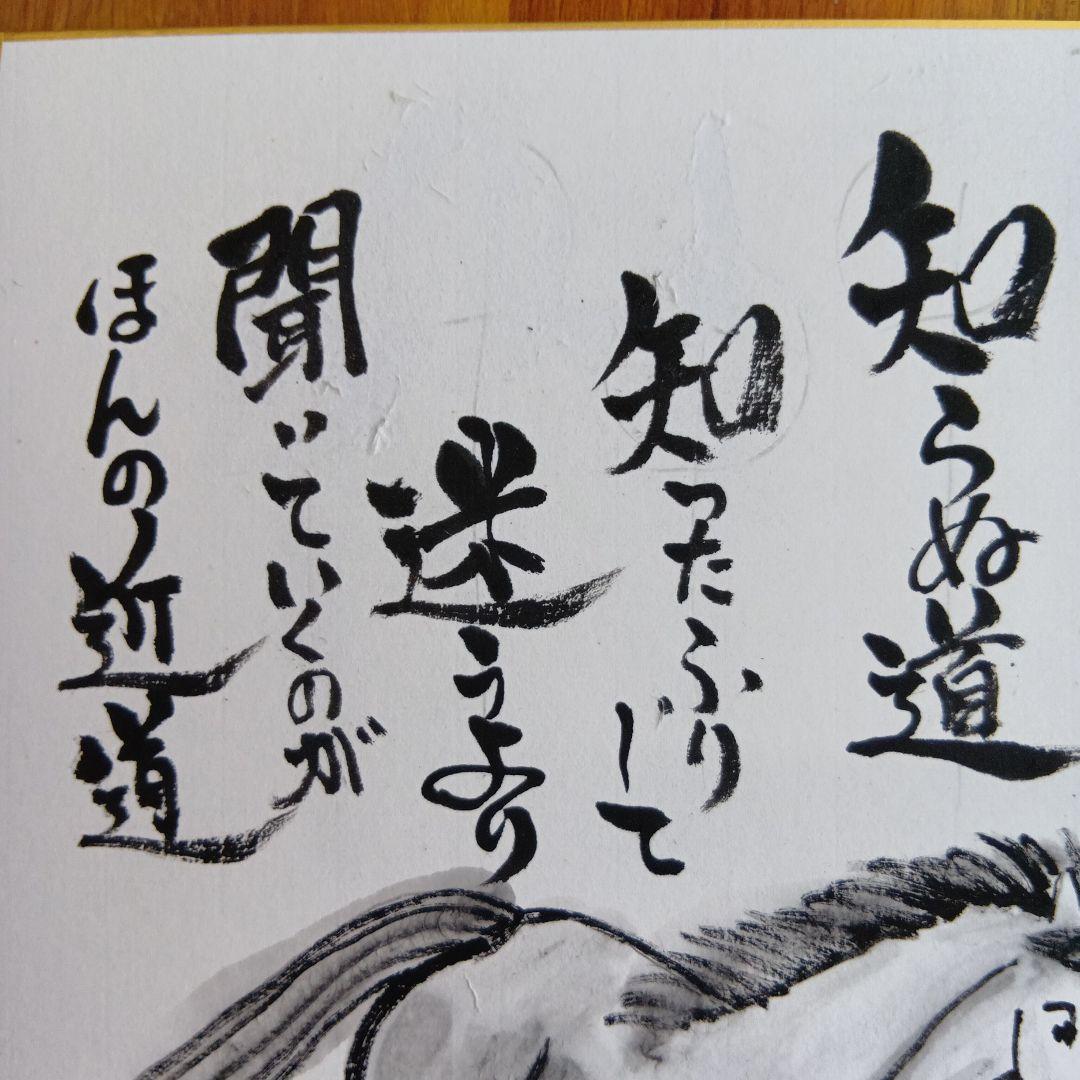 知らぬ道
知ったふり
じて
迷うより
聞いていくのが
ほんの近道